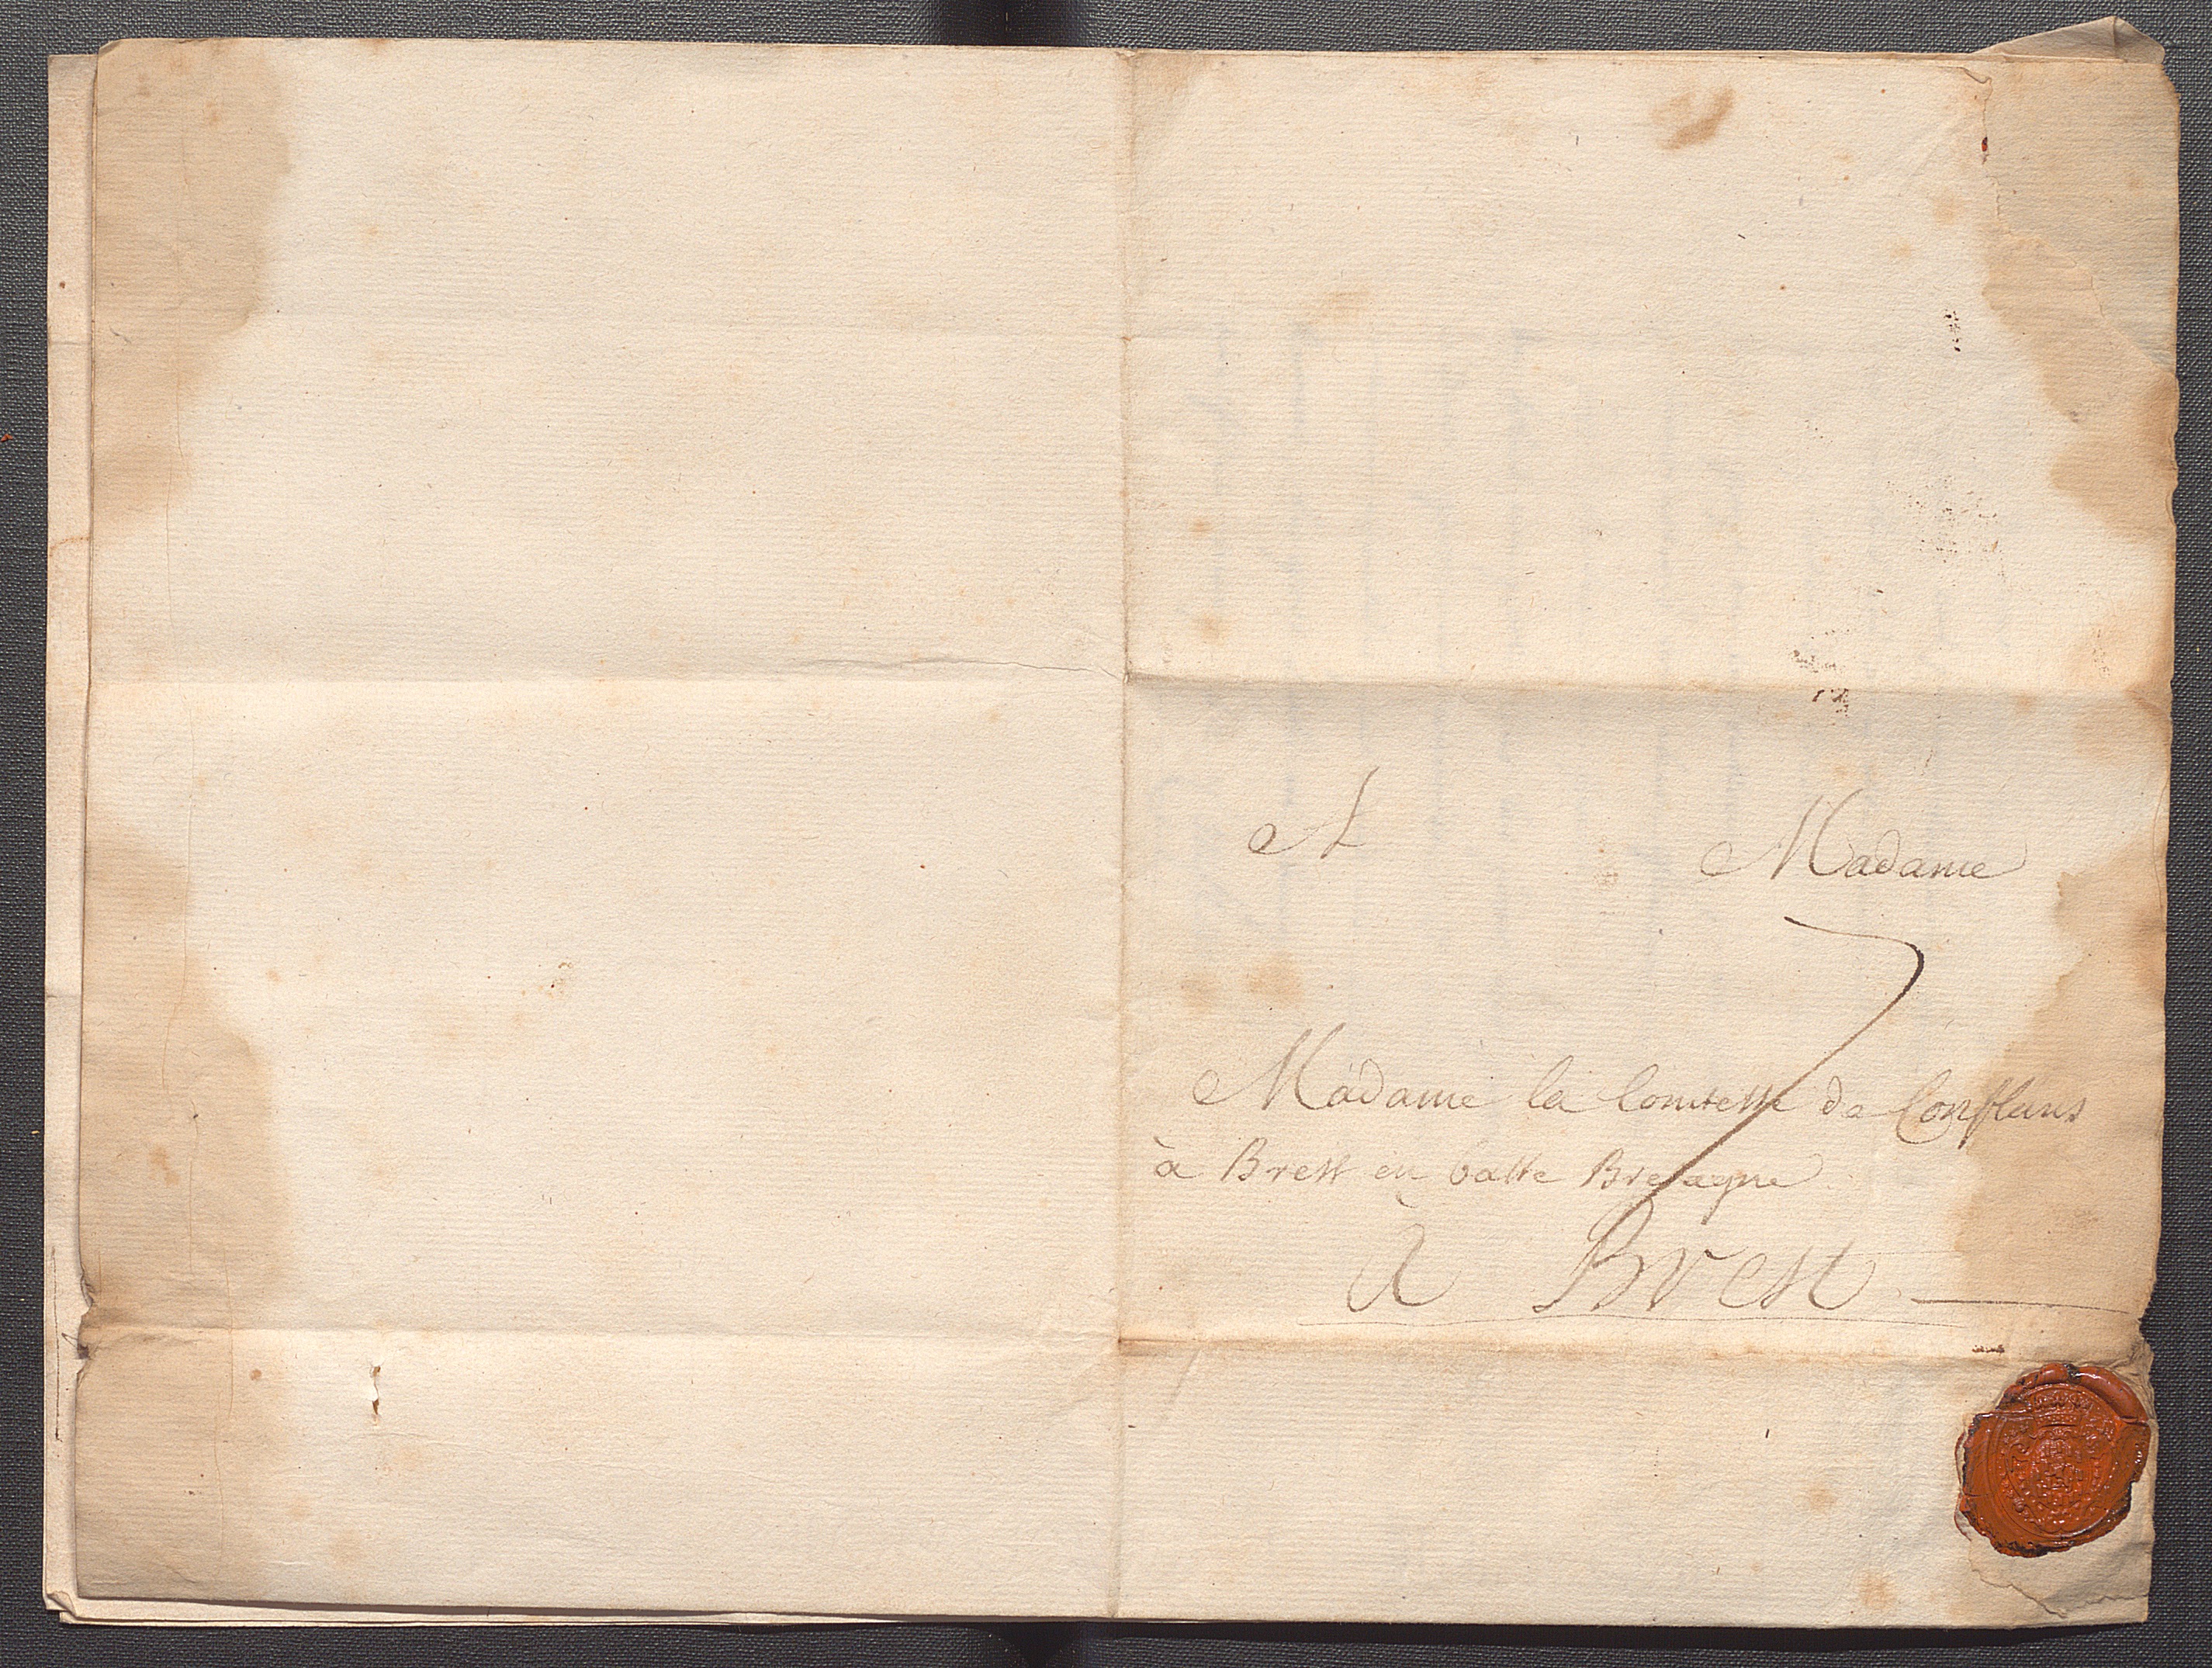 A Madame
Madame la Comtesse de Conflans
à Brest en basse Bretagne
à Brest